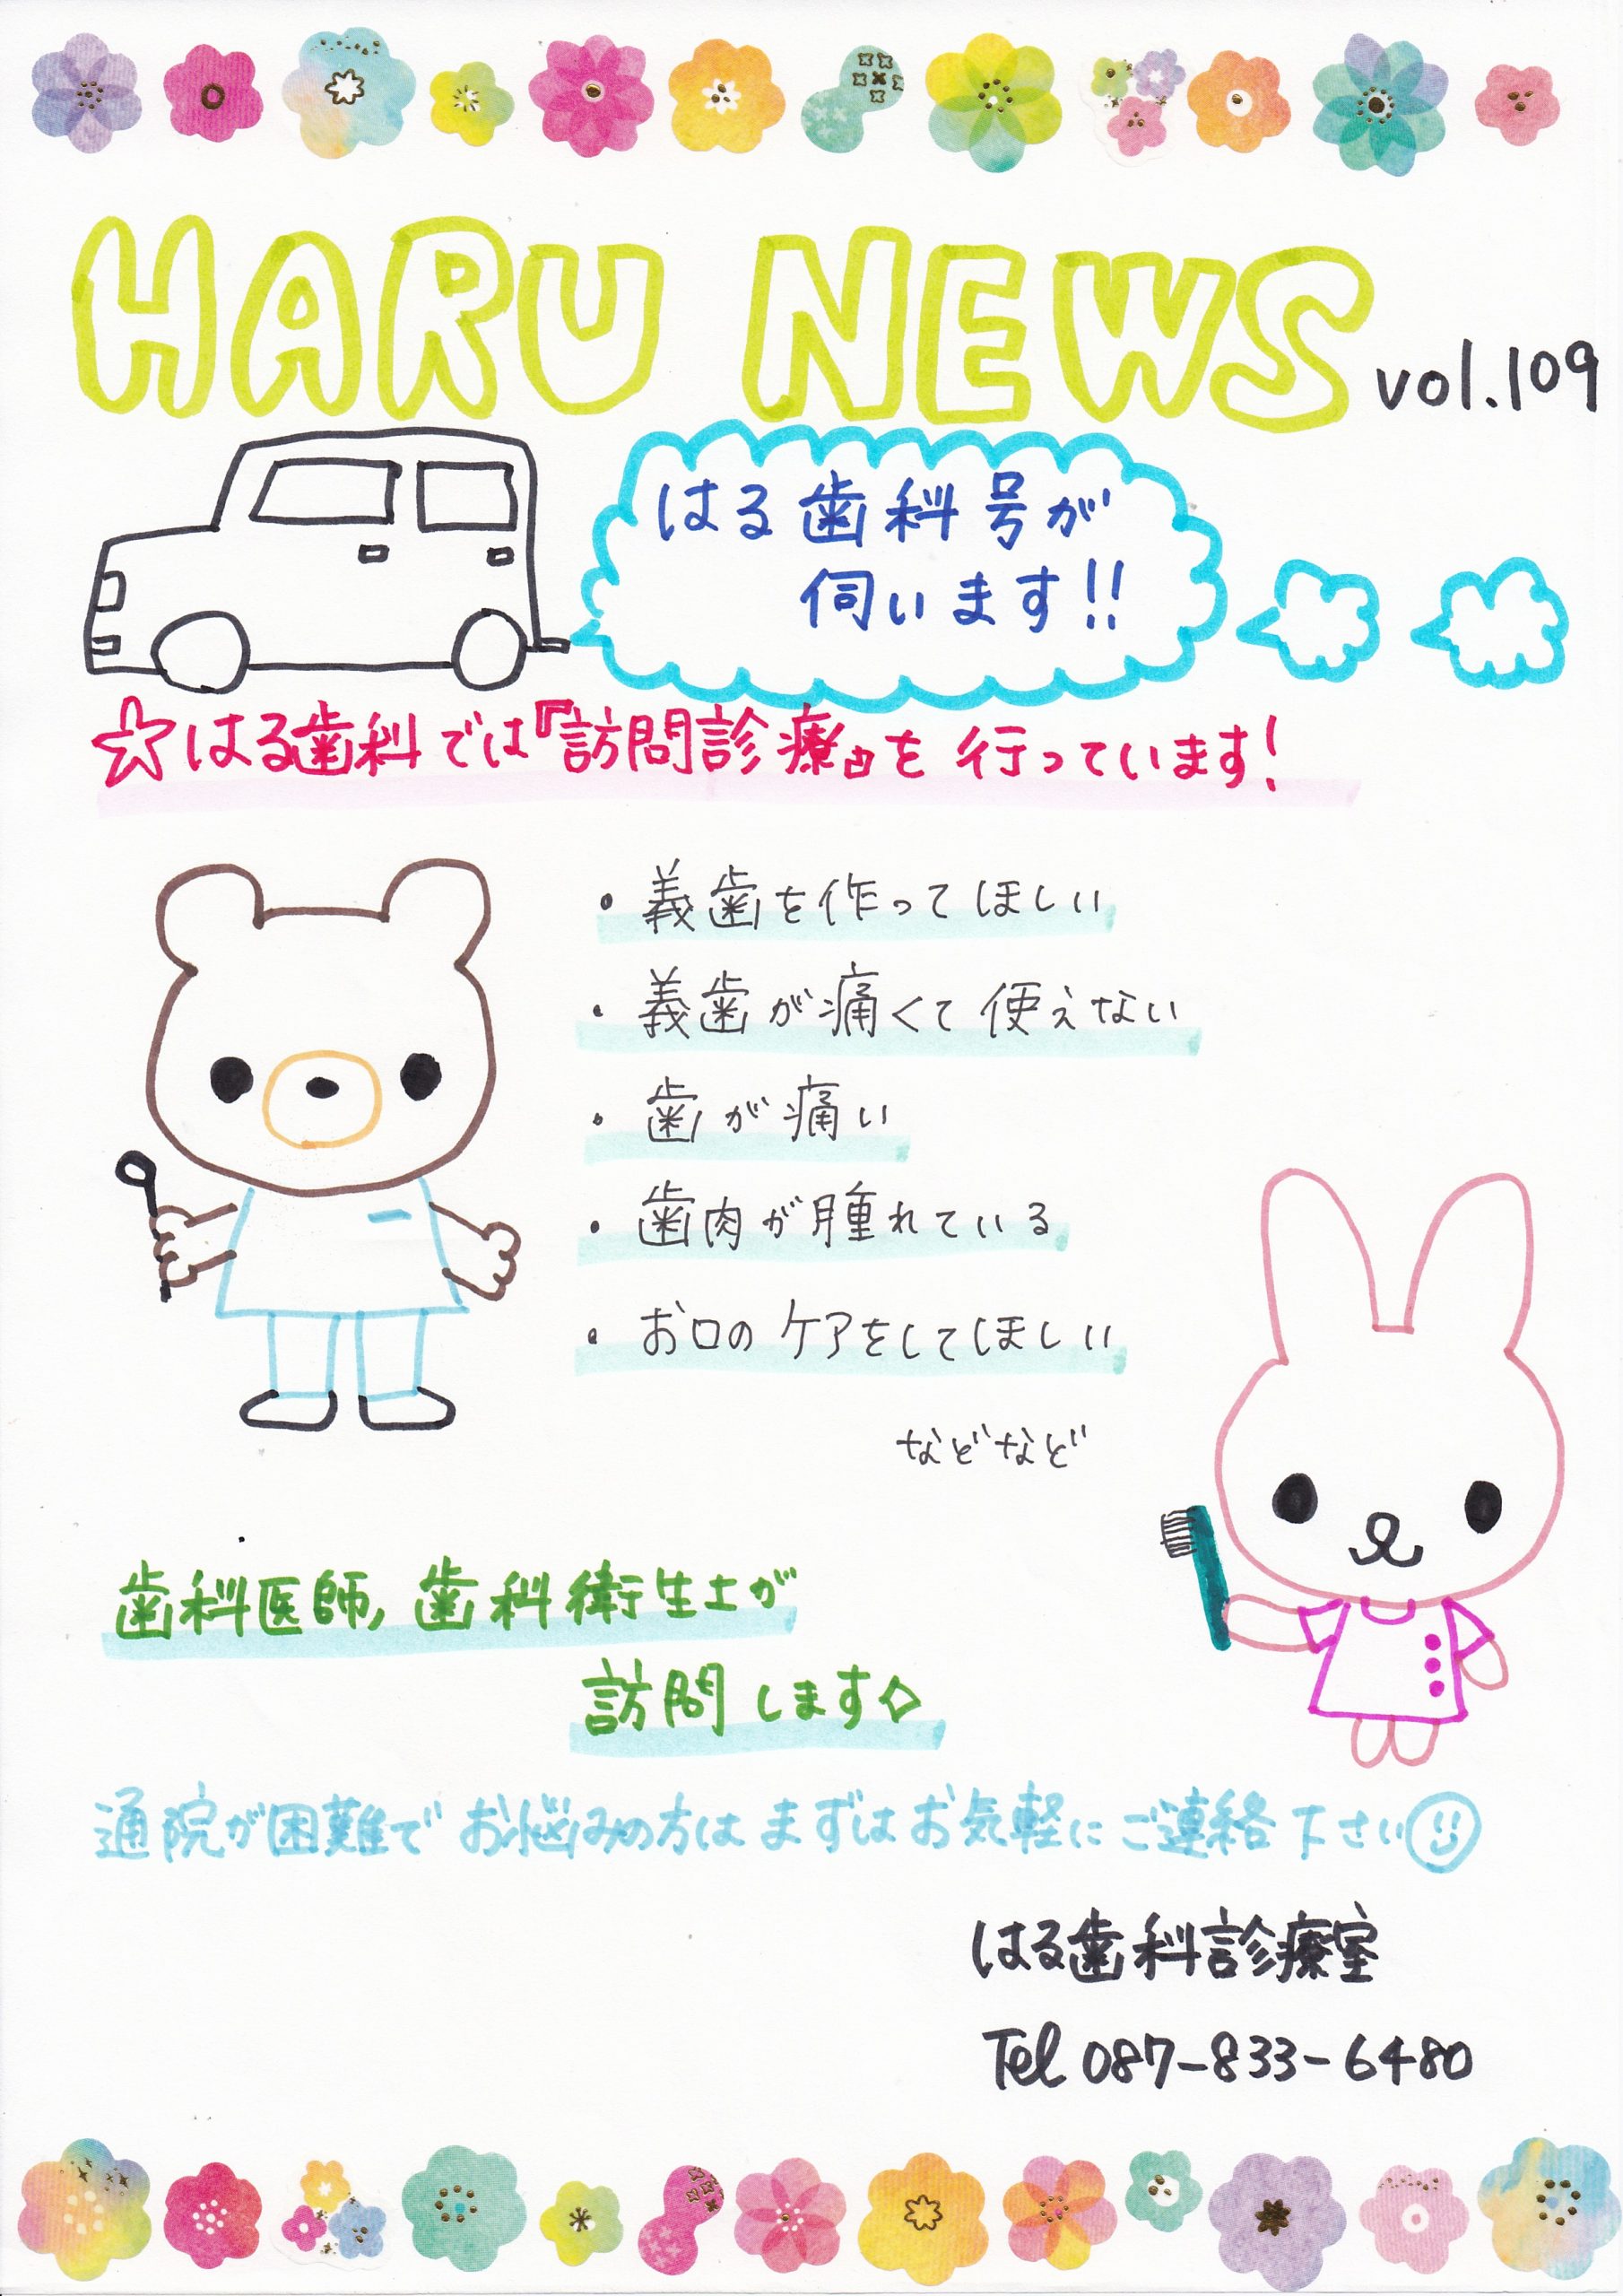 HARU NEWS vol.109
はる歯科号が
伺います!!
☆はる歯科では『訪問診療』を行っています!
・義歯を作ってほしい
・義歯が痛くて使えない
・歯が痛い
・歯肉が腫れている
・お口のケアをしてほしい
などなど
歯科医師,歯科衛生士が
訪問します◇
通院が困難でお悩みの方はまずはお気軽にご連絡下さい
はる歯科診療室
Tel 087-833-6480